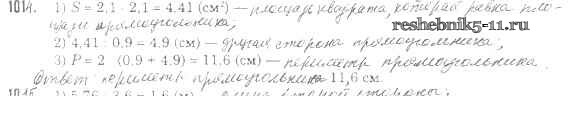 1014. 1) S = 2,1 · 2,1 = 4,41 (см²) — площадь квадрата, которая равна пло-
щади прямоугольника;
2) 4,41 : 0,9 = 4,9 (см) — другая сторона прямоугольника;
3) P = 2 (0,9 + 4,9) = 11,6 (см) — периметр прямоугольника.
Ответ: периметр прямоугольника 11,6 см.
1015. 1) 5,76 : 3,6 = 1,6 (см) — длина второй стороны.
www.reshebnik11.ru